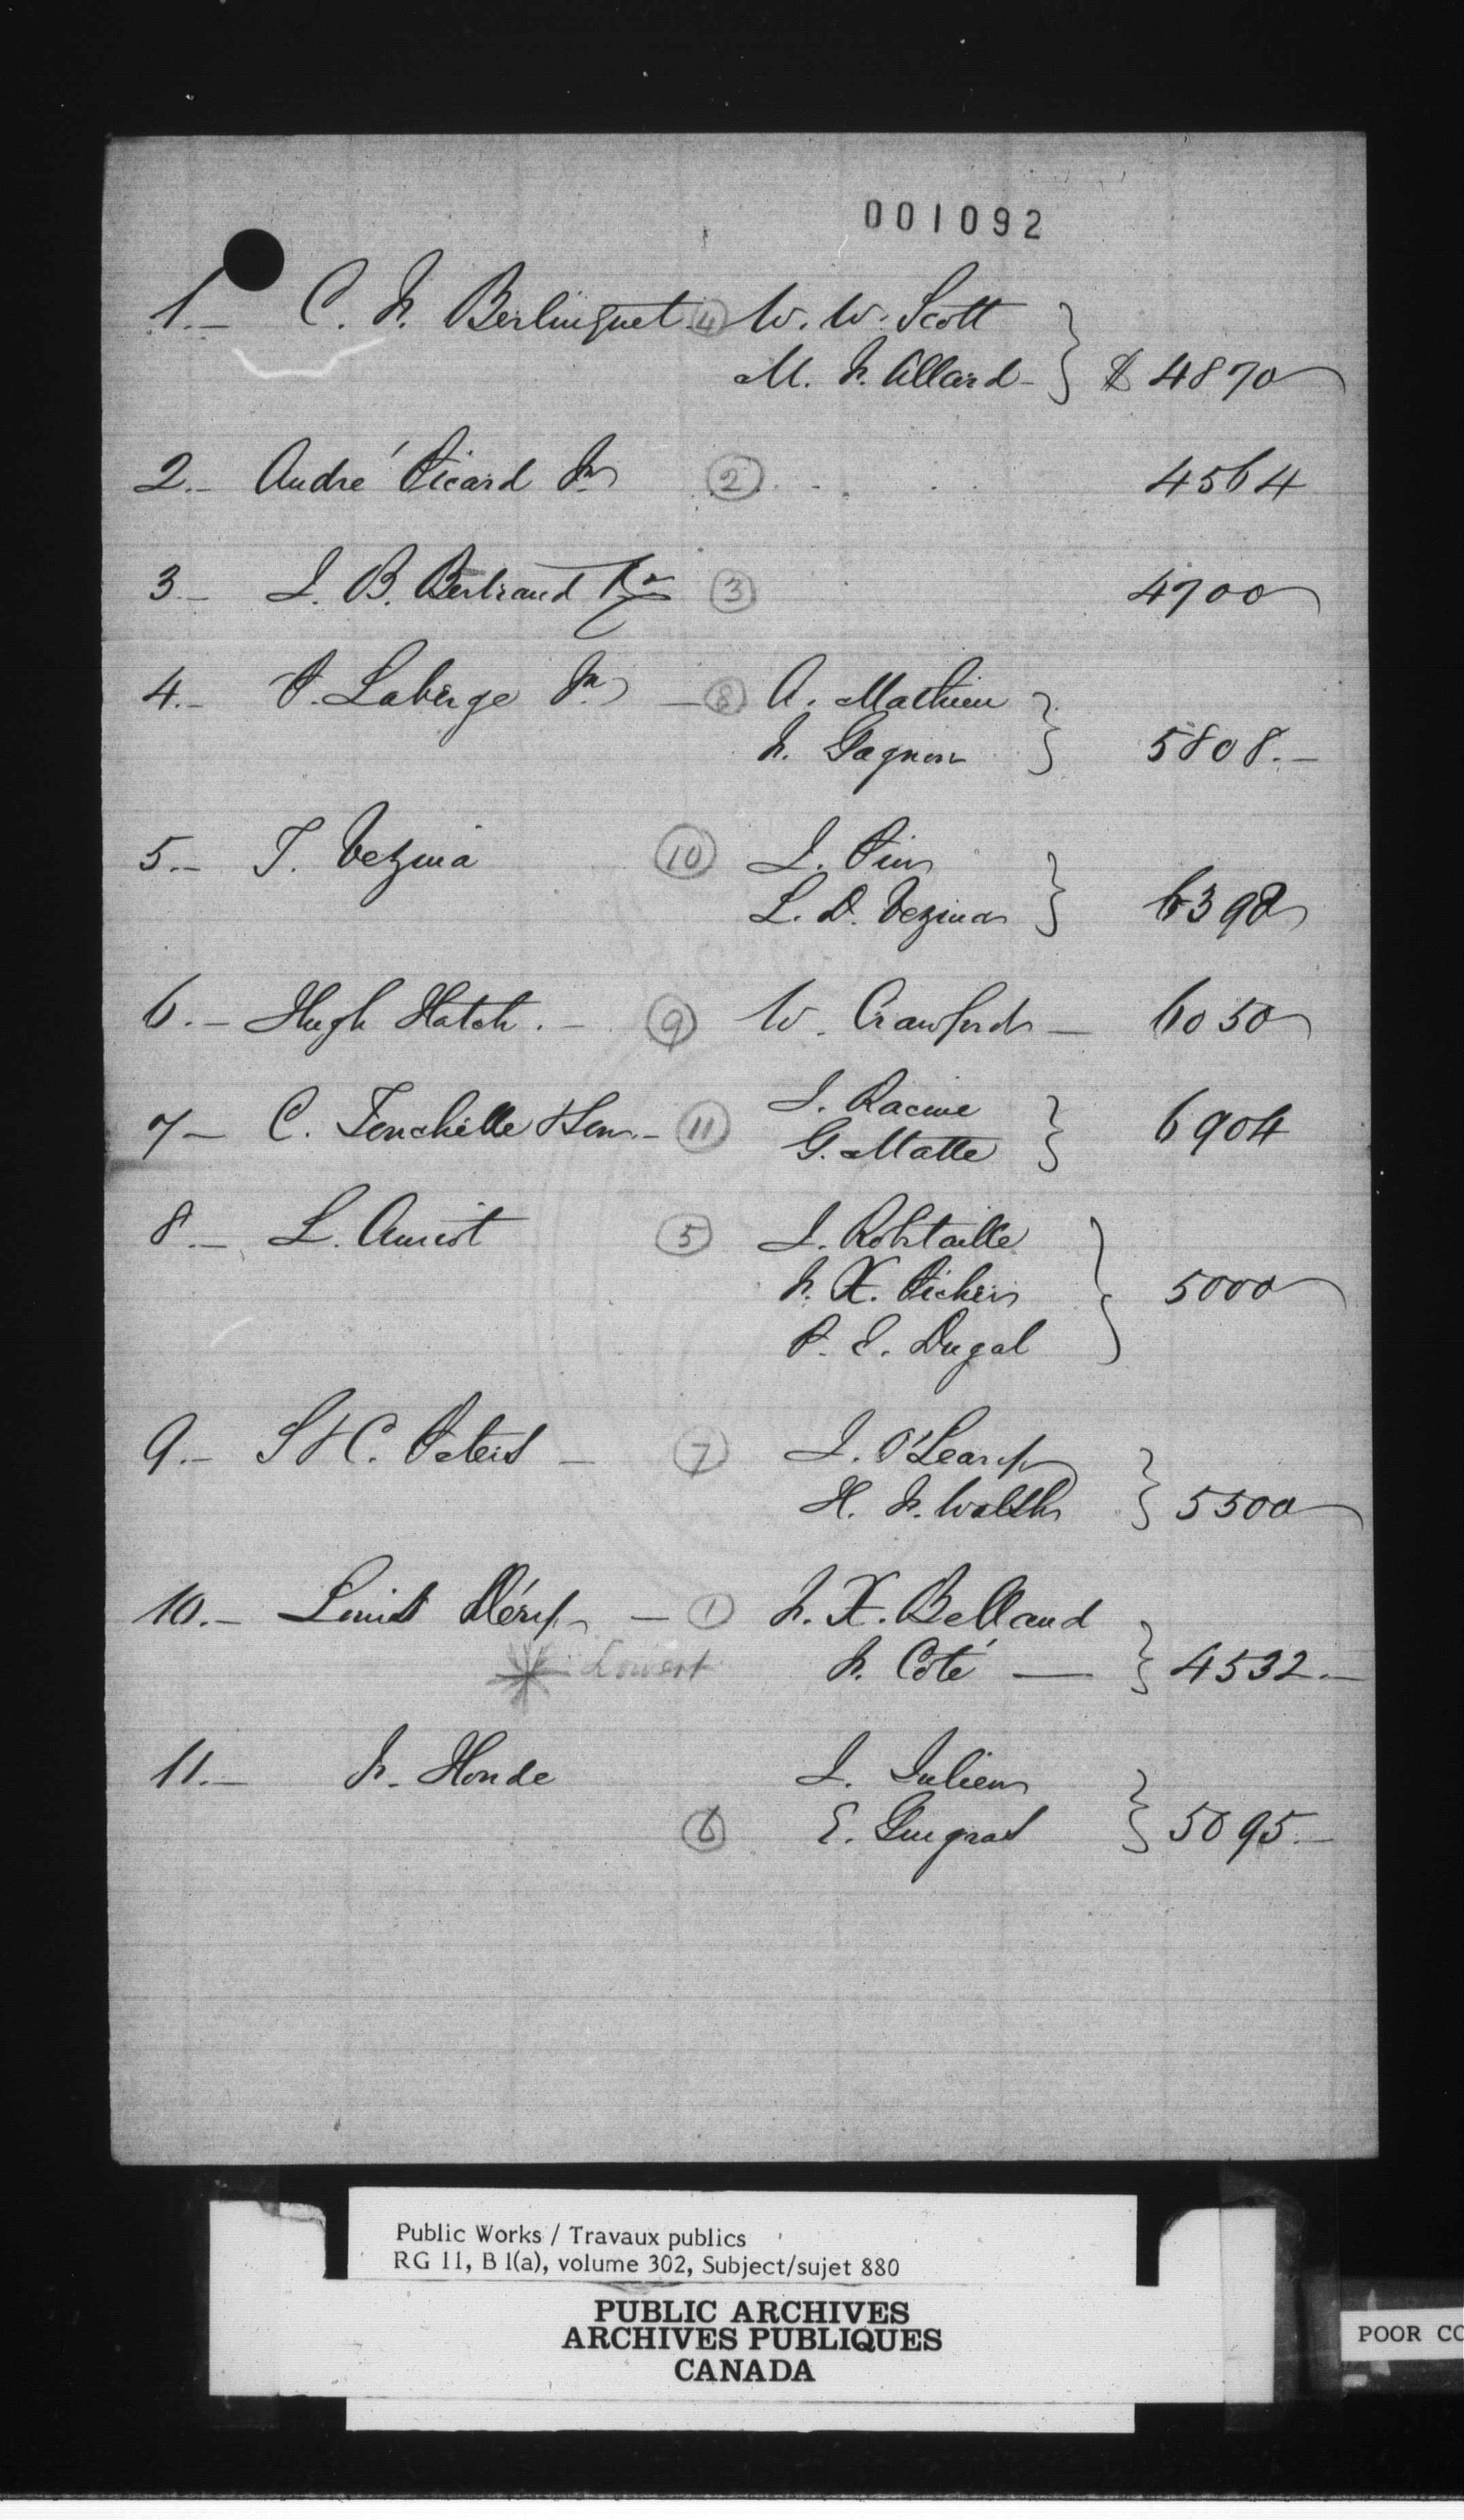 001092
1.- C. F. Berlinguet (4) W. W. Scott
M. F. Allard } $ 4870
2.- André Picard Jr (2) 4564
3- J. B. Bertrand (3) 4700
4.- P. Laberge Jr - (8) A. Mathieu
F. Gagnon } 5808.-
5.- T. Vezina (10) J. Piu
L. D. Vezina } 6398
6.- Hugh Hatch.- (9) W. Crawford - 6050
7- C. & Son- (11) J. Racine
G. Matte } 6904
8.- L. Amiot (5) J. Robitaille
F. X. Picher
P. E. Dugal } 5000
9.- S & C. Peters - (7) J. O'Leary
H. F. Walsh } 5500
10.- Louis Déry - (1) F. X. Belland
* Lowest F. Coté - } 4532.-
11.- F. Houde J. Julien
(6) E. Gingras } 5095.-
Public Works / Travaux publics
RG 11, B 1(a), volume 302, Subject/sujet 880
PUBLIC ARCHIVES
ARCHIVES PUBLIQUES
CANADA
POOR CO